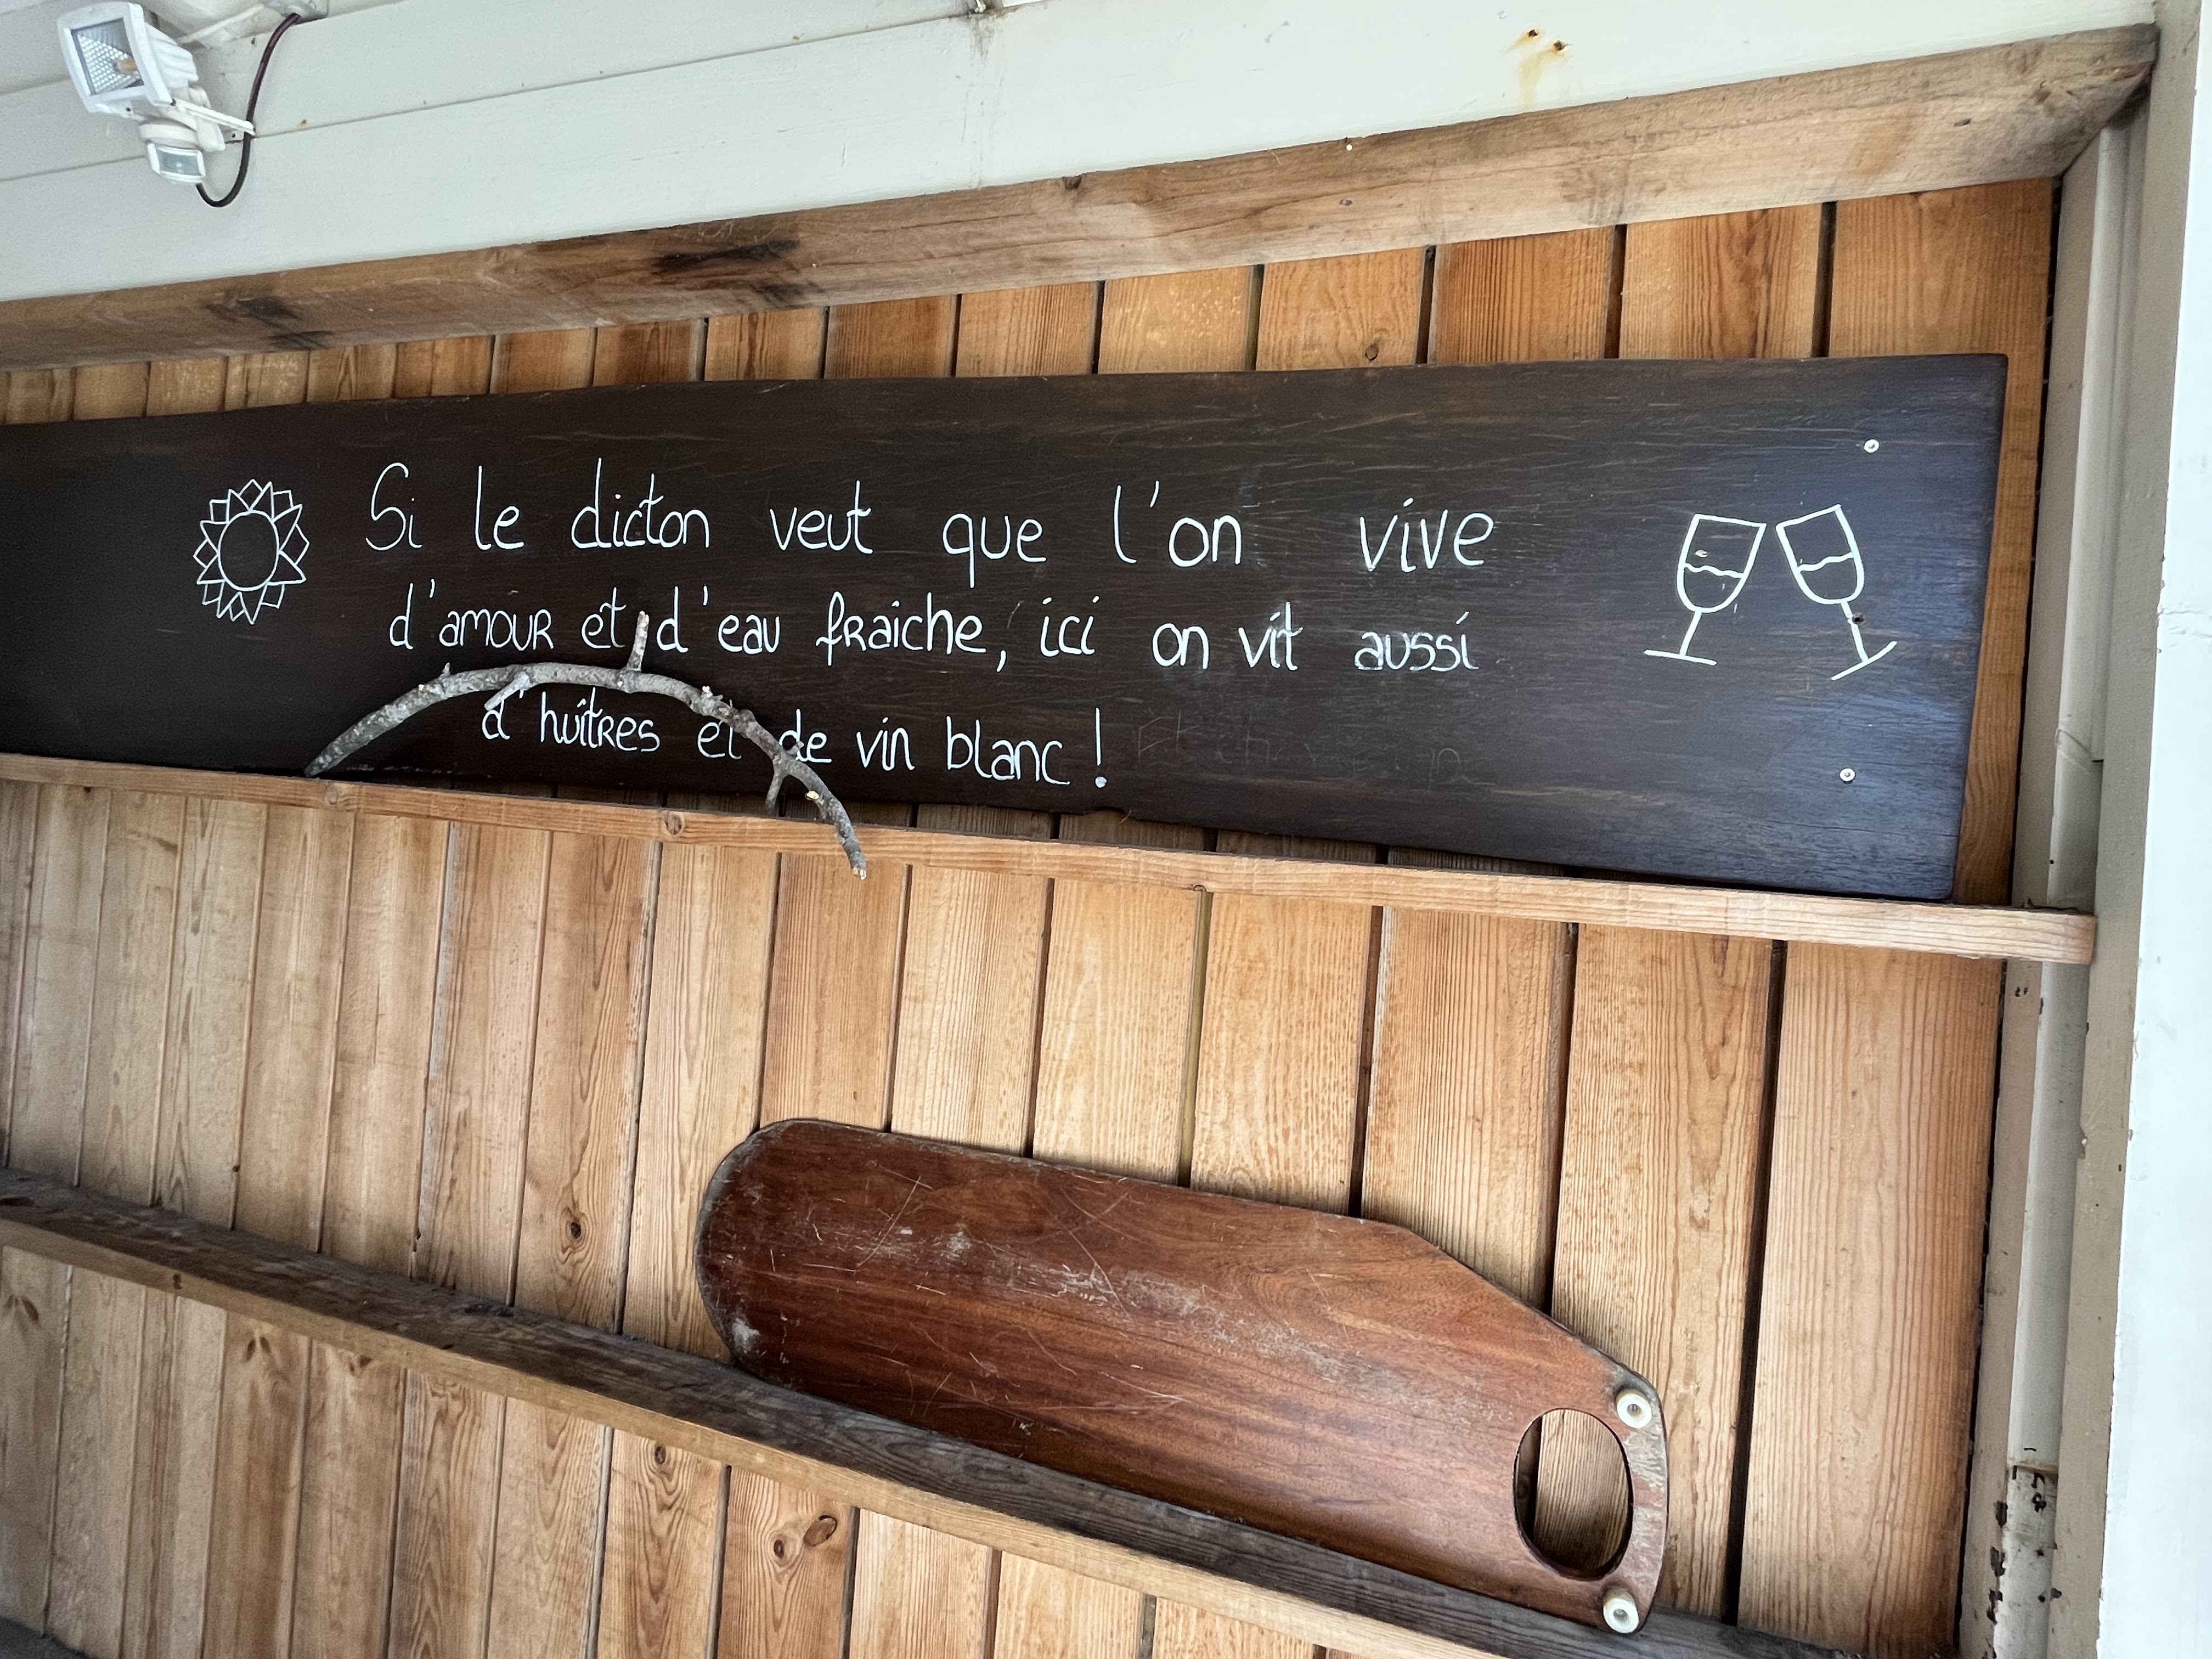 Si le dicton veut que l'on vive
d'amour et d'eau fraiche, ici on vit aussi
d'huîtres et de vin blanc !